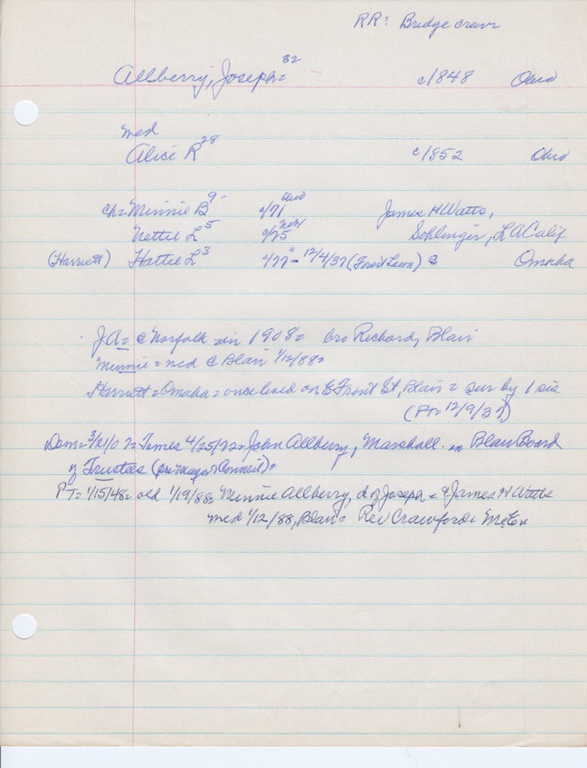 RR: Bridge crew
Allberry, Joseph= 32 c1848 Ohio
med
Alice R 28 c1852 Ohio
ch= Minnie B 9- c/71 Ohio James H Watts,
Nettie L 5 c/75 Nebr L A Calif
(Harriett) Hattie L 3 c/77 " - 12/4/37 (Forest Lawn) Omaha
JA= @ Norfolk in 1908= bro Richard, Blair
Minnie = med @ Blair 1/12/88=
Harriett = Omaha = once lived on E Front St, Blair = sur by 1 sis
(PT= 12/9/37)
Times 4/25/72= John Allberry, Marshall in Blair Board
of Trustees (pre Mayor & Council)=
PT= 1/15/48= old 1/19/88= Minnie Allberry, d of Joseph & James H Watts
med 1/12/88, Blair= Rev Crawford=